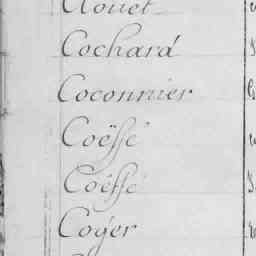 Clouet
Cochard
Coconnier
Coëssé
Coëssé
Coyer